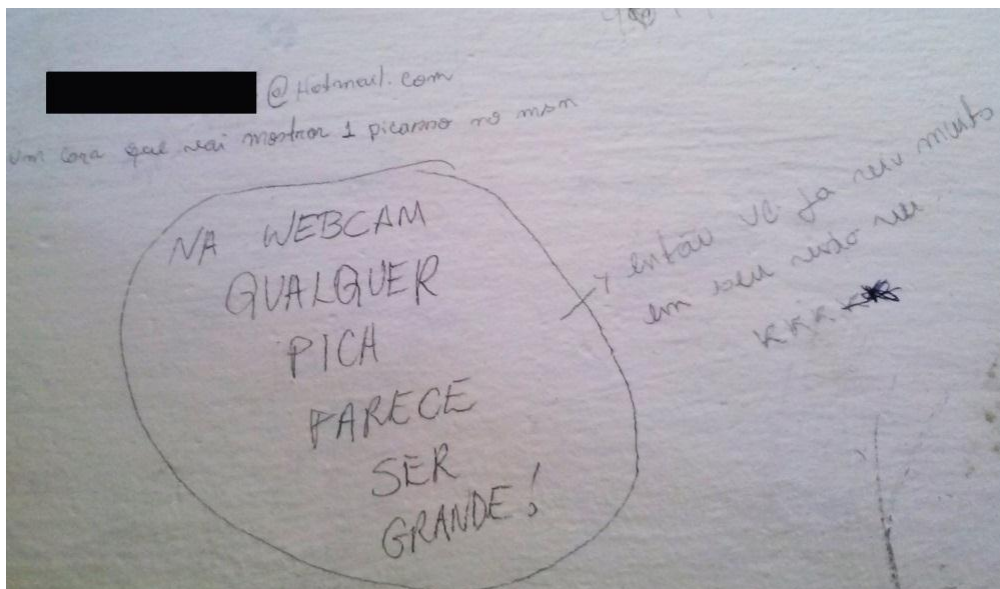 @Hotmail.com
um cara que vai mostrar 1 picasso no msn
NA WEBCAM
QUALQUER
PICA
PARECE
SER
GRANDE!
então vc ja viu muito
em seu
KKKK